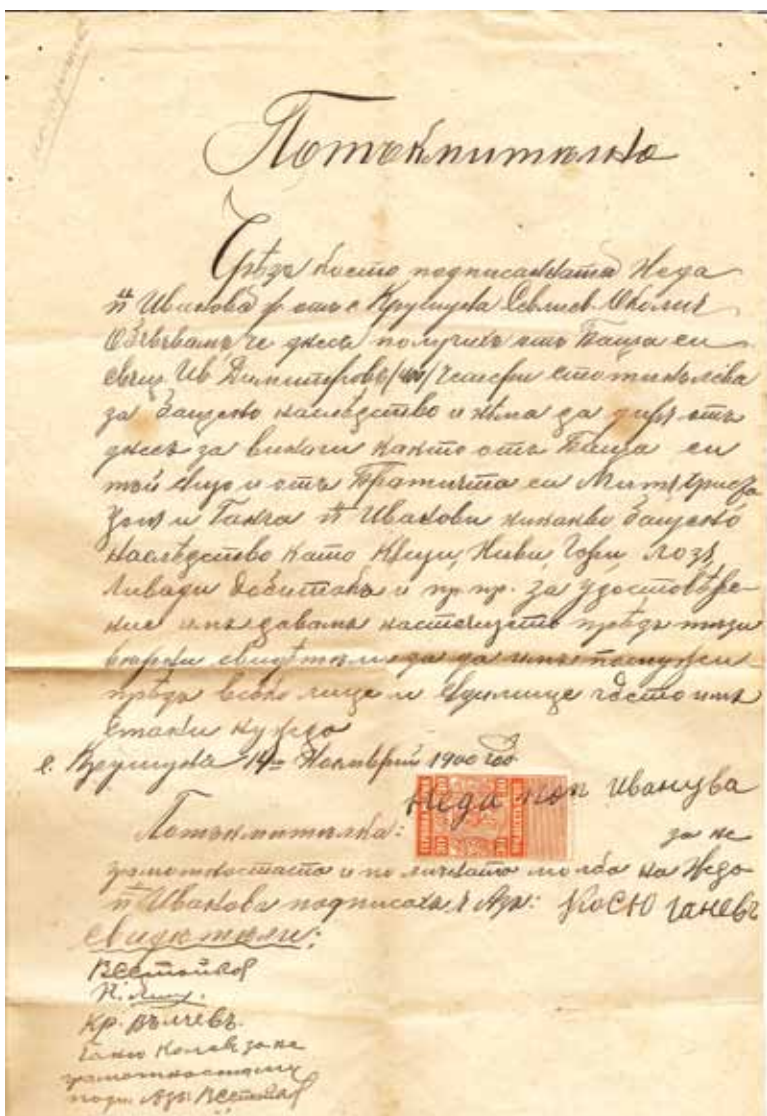 Потъкмителна
Чрѣзъ което подписанната Неда
п. Иванова отъ с. Крушуна Севлиев. Околия
Обявявамъ че днесъ получихъ отъ Баща си
свещ. Ив. Димитровъ /400/ Четири стотинъ лѣва
за бащено наслѣдство и нѣма да диря отъ
днесъ за винаги както отъ Баща си
тъй също и отъ Братията си
и Ганча п. Иванови никакво бащено
наслѣдство като Кѫщи, Ниви, Гори, лозя,
Ливади добитакъ и пр. пр. за удостовѣре-
ние имъ давамъ настоящето прѣдъ тѣзи
свидѣтели да имъ послужи
прѣдъ всѣко лице и сѫдилище гдѣто имъ
стане нужда
с. Крушуна 14й Ноемврий 1900 год
Неда поп Иванува
Потъкмителка:
за не
грамотностьта и по личната молба на Неда
п. Иванова подписахъ Азъ: КОСЮ ГАНЕВЪ
свидѣтели:
В Стойков
Кр. Вълчевъ.
Ганю Колев за не
грамотностьта му
подп. Азъ: В Стойков